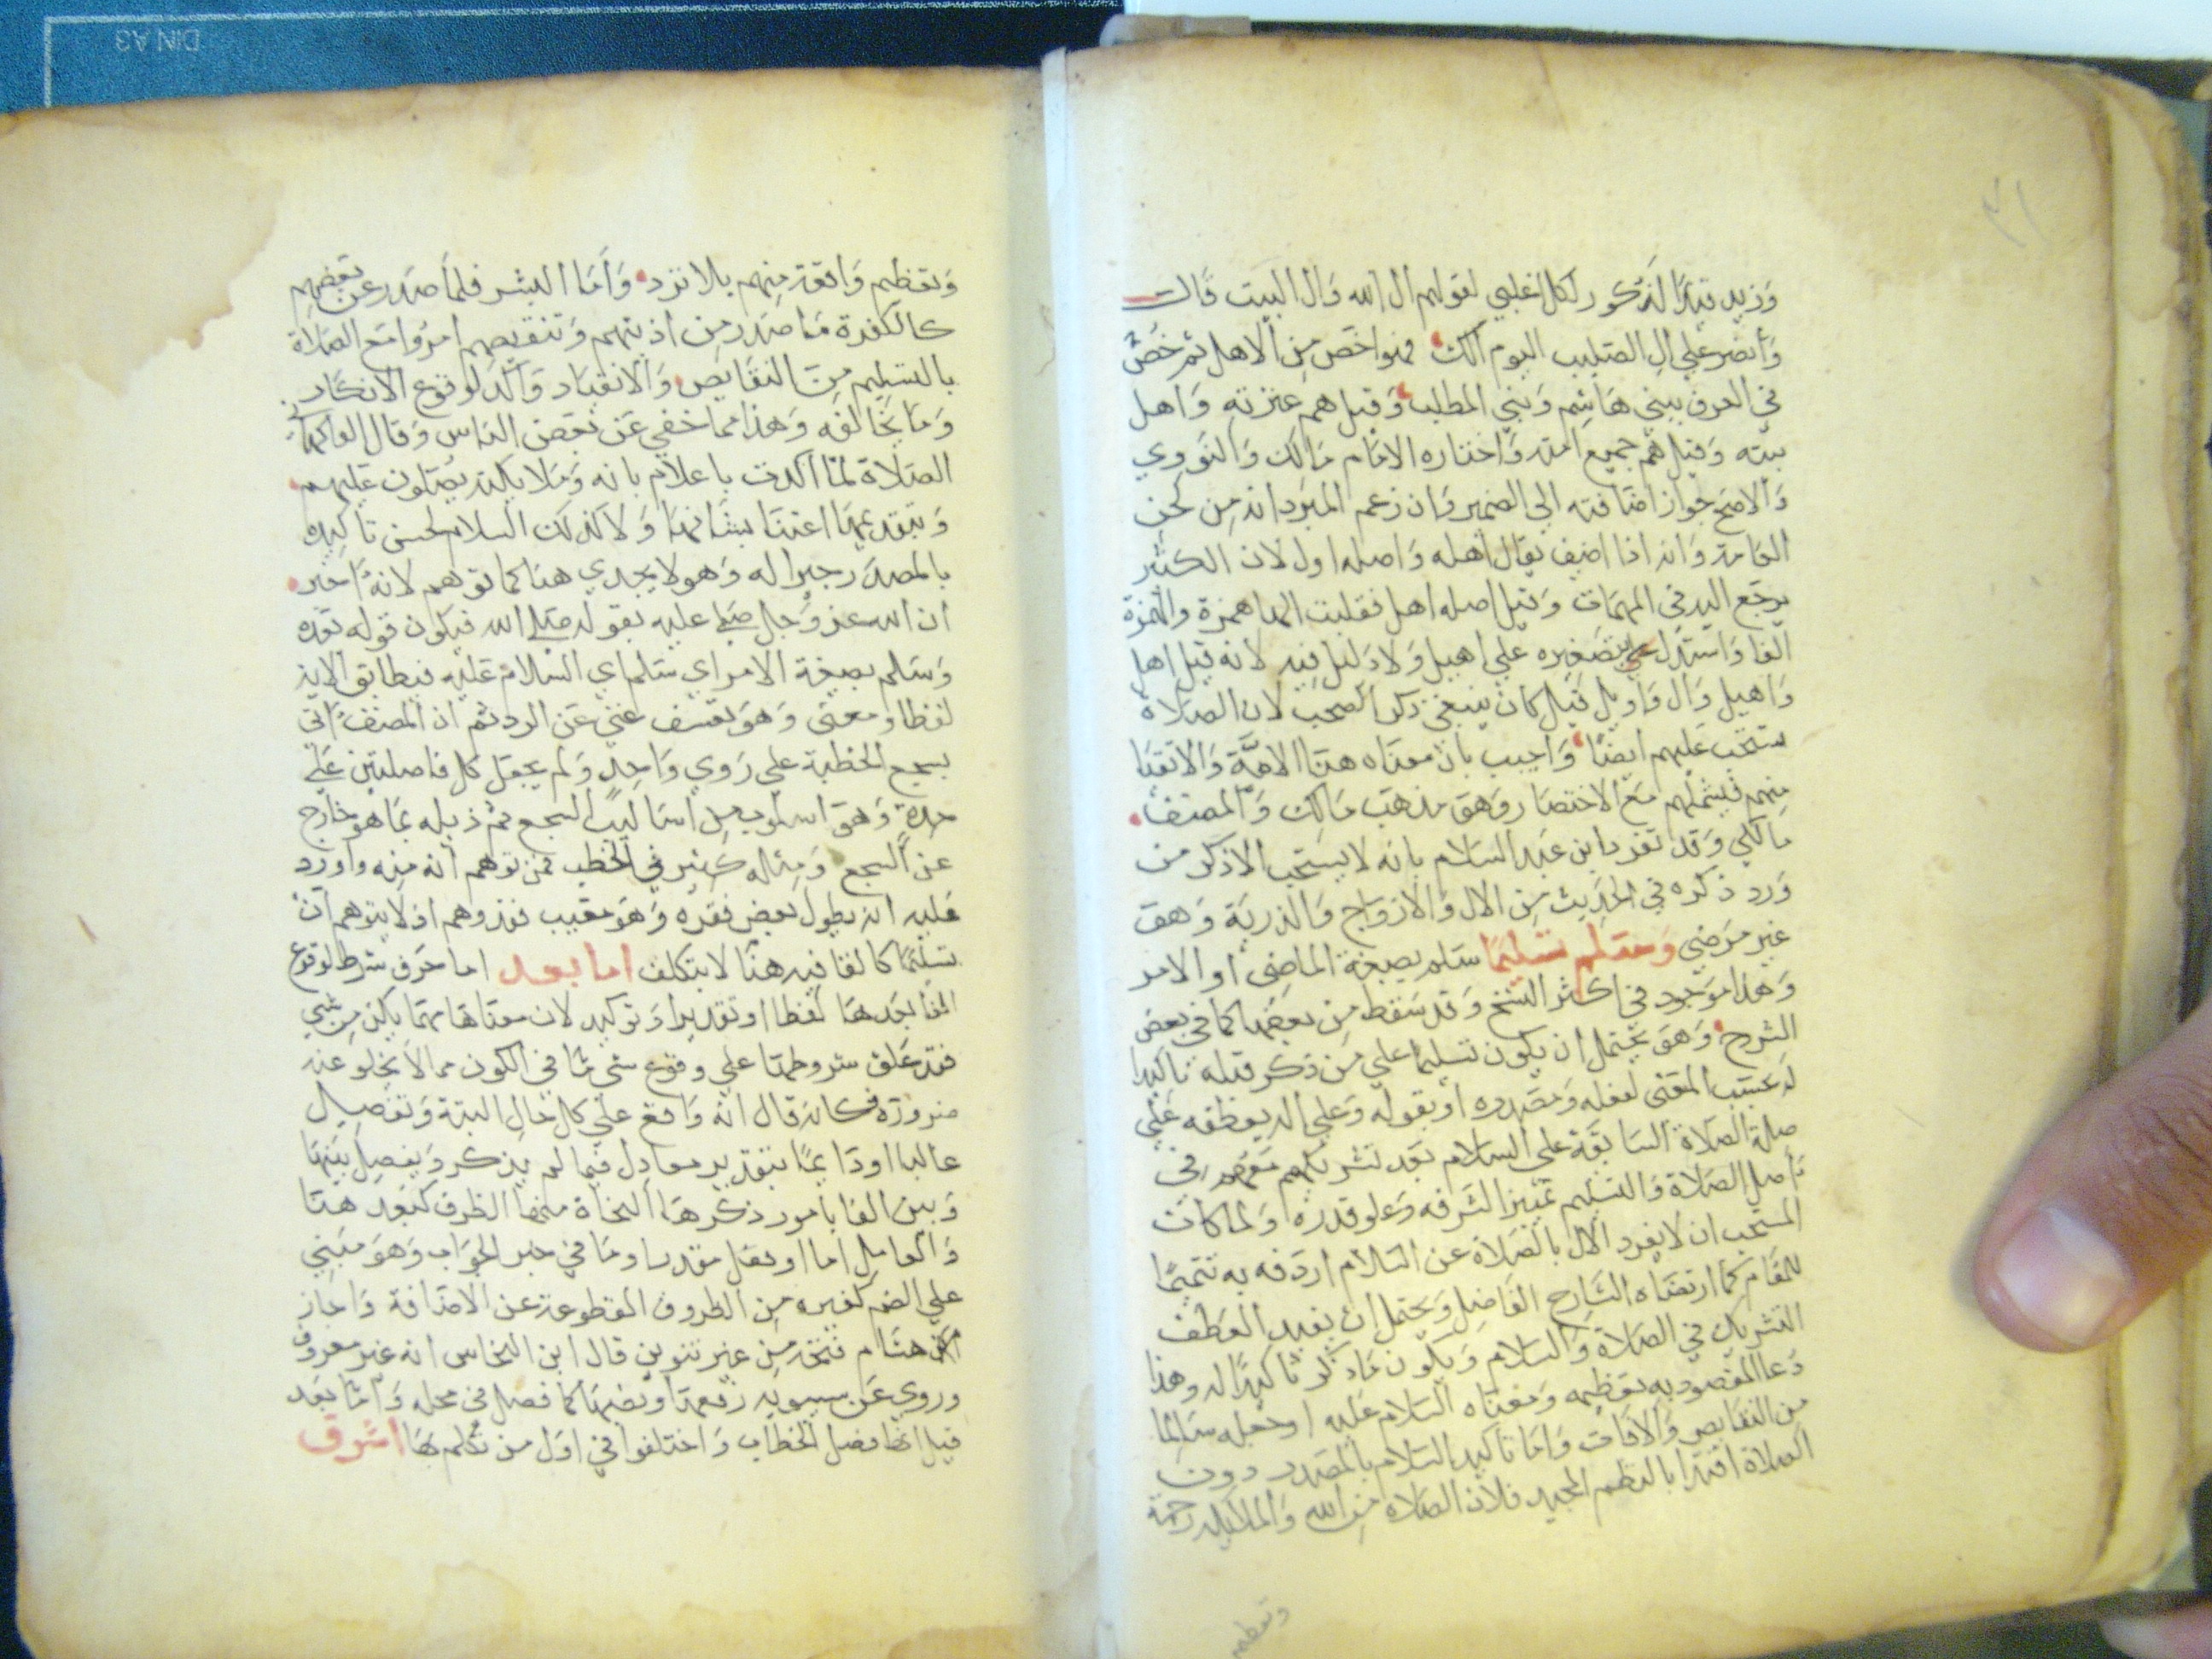 ٢١
وزيد قيد المذكور لكل اغلبي لقولهم ال الله وال البيت قالت
وأنصر علي ال الصليب اليوم آلك فهو اخص من الاهل ثم خص
في العرف ببني هاشم وبني المطلب وقيل هم عترته واهل
بيته وقيل هم جميع امته واختاره الامام مالك والنووي
والاصح جواز اضافته الي الضمير وان زعم المبرد انه من لحن
العامة وانه اذا اضيف يقال اهله واصله اول لان الكثير
يرجع اليه في المهمات وقيل اصله اهل فقلبت الها همزة والهمزة
الفا واستدل علي بتصغيره علي اهيل ولا دليل فيه لانه قيل اهل
واهيل وال واويل قيل كان ينبغي ذكر الصحب لان الصلاة
ستحب عليهم ايضا واجيب بان معناه هنا الامة والاتقيا
منهم فيشملهم مع الاختصار وهو مذهب مالك والمصنف
مالكي وقد تفرد ابن عبد السلام بانه لا يستحب الا ذكر من
ورد ذكره في الحديث من الال والازواج والذرية وهو
غير مرضي وسلم تسليما سلم بصيغة الماضي او الامر
وهذا موجود في اكثر النسخ وقد سقط من بعضها كما في بعض
الشروح وهو يحتمل ان يكون تسليما علي من ذكر قبله تاكيدا
له بحسب المعني لفعله ومصدره او بقوله وعلي اله بعطفه علي
صلة الصلاة السابقة علي السلام بعد تشريكهم معهم في
اصل الصلاة والتسليم تمييزا لشرفه وعلو قدره ولما كان
المستحب ان لا يفرد الال بالصلاة عن السلام اردفه به تتميما
للمقام كما ارتضاه الشارح الفاضل ويحتمل ان يفيد العطف
التشريك في الصلاة والسلام ويكون ما ذكر تاكيدا له وهذا
دعا المقصود به تعظيمه ومعناه السلام عليه او جعله سالما
من النقايص والافات واما تاكيد السلام بالمصدر دون
الصلاة اقتدا بالنظم المجيد فلان الصلاة من الله والملايكه رحمة
وتعظيم
وتعظيم واقعة منهم بلا تردد واما البشر فلما صدر عن بعضهم
كالكفرة ما صدر من اذيتهم وتنقيصهم امروا مع الصلاة
بالتسليم من النقايص والانقياد واكد لوقوع الانكار
وما يخالفه وهذا مما خفي عن بعض الناس وقال الفاكهاني
الصلاة لما اكدت باعلام بانه وملايكته يصلون عليهم
وتبقد عما اعتنا بشانها ولا كذلك السلام لحسن تاكيده
بالمصدر جبرا له وهو لا يجدي هنا كما توهم لانه اخبر
ان الله عز وجل صلي عليه بقوله صلي الله فيكون قوله بعده
وسلم بصيغة الامر اي سلم اي السلام عليه فيطابق الاية
لفظا ومعني وهو تعسف غني عن الرد ثم ان المصنف اتي
بسجع الخطبة علي روي واحد ولم يجعل كل فاصلتين علي
حدة وهو اسلوب من اساليب السجع ثم ذيله بما هو خارج
عن السجع ومثله كثير في الخطب فمن توهم انه منه واورد
عليه انه يطول بعض فقره وهو معيب فقد وهم اذ لا يتوهم ان
تسليما كالفا فيه هنا لا بتكلف اما بعد اما حرف شرط لوقوع
الفا بعدها لفظا او تقديرا وتوكيد لان معناها مهما يكن من شي
فقد علق شروطها علي وقوع شي ما في الكون مما لا يخلو عنه
ضرورة فكانه قال انه واقع علي كل حال البتة وتفصيل
غالبا او دايما بتقدير معادل فيما لم يذكر ويفصل بينها
وبين الفا بامور ذكرها النحاة منها الظرف كبعد هنا
والعامل اما او بفعل مقدر او ما في حيز الجواب وهو مبني
علي الضم كغيره من الظروف المقطوعة عن الاضافة واجاز
هشام فتحه من غير تنوين قال ابن النحاس انه غير معروف
وروي عن سيبويه رفعها ونصبها كما فصل في محله واما بعد
قيل انها فصل الخطاب واختلفوا في اول من تكلم بها اشرق